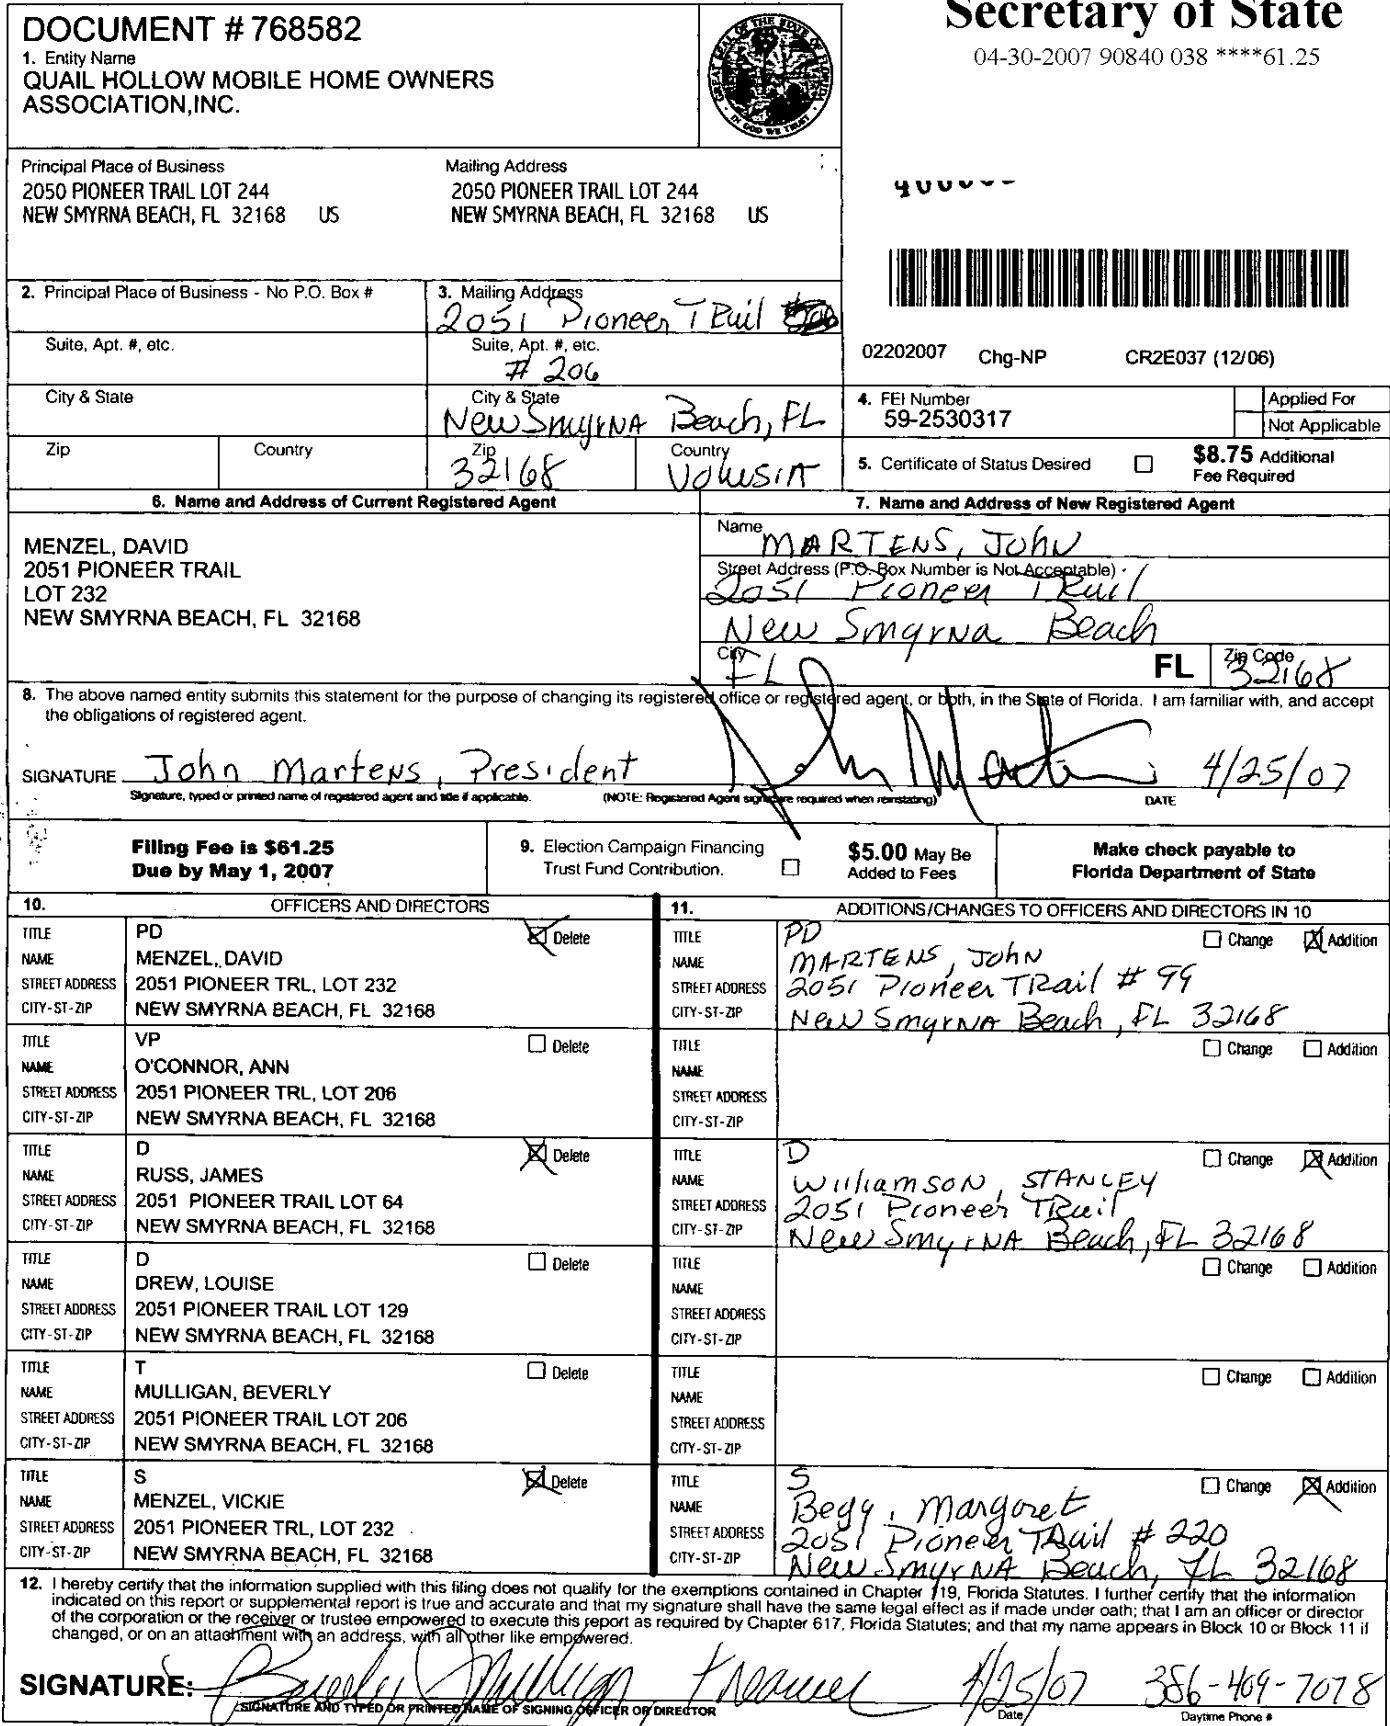 DOCUMENT # 768582
1. Entity Name
QUAIL HOLLOW MOBILE HOME OWNERS
ASSOCIATION,INC.
GREAT SEAL OF THE STATE OF FLORIDA
IN GOD WE TRUST
Secretary of State
04-30-2007 90840 038 ****61.25
Principal Place of Business
2050 PIONEER TRAIL LOT 244
NEW SMYRNA BEACH, FL 32168 US
Mailing Address
2050 PIONEER TRAIL LOT 244
NEW SMYRNA BEACH, FL 32168 US
02202007 Chg-NP CR2E037 (12/06)
2. Principal Place of Business - No P.O. Box #
Suite, Apt. #, etc.
City & State
Zip Country
3. Mailing Address
2051 Pioneer TRail
Suite, Apt. #, etc.
# 206
City & State
New SmyrNA Beach, FL
Zip Country
32168 VolusiA
4. FEI Number
59-2530317
Applied For
Not Applicable
5. Certificate of Status Desired
$8.75 Additional
Fee Required
6. Name and Address of Current Registered Agent
MENZEL, DAVID
2051 PIONEER TRAIL
LOT 232
NEW SMYRNA BEACH, FL 32168
7. Name and Address of New Registered Agent
Name
MARTENS, JohN
Street Address (P.O. Box Number is Not Acceptable)
2051 Pioneer TRail
New SmyrNa Beach
City FL FL Zip Code 32168
8. The above named entity submits this statement for the purpose of changing its registered office or registered agent, or both, in the State of Florida. I am familiar with, and accept
the obligations of registered agent.
SIGNATURE John Martens, President John Martens 4/25/07
Signature, typed or printed name of registered agent and title if applicable. (NOTE: Registered Agent signature required when reinstating) DATE
Filing Fee is $61.25
Due by May 1, 2007
9. Election Campaign Financing
Trust Fund Contribution.
$5.00 May Be
Added to Fees
Make check payable to
Florida Department of State
10. OFFICERS AND DIRECTORS
TITLE PD Delete
NAME MENZEL, DAVID
STREET ADDRESS 2051 PIONEER TRL, LOT 232
CITY-ST-ZIP NEW SMYRNA BEACH, FL 32168
TITLE VP Delete
NAME O'CONNOR, ANN
STREET ADDRESS 2051 PIONEER TRL, LOT 206
CITY-ST-ZIP NEW SMYRNA BEACH, FL 32168
TITLE D Delete
NAME RUSS, JAMES
STREET ADDRESS 2051 PIONEER TRAIL LOT 64
CITY-ST-ZIP NEW SMYRNA BEACH, FL 32168
TITLE D Delete
NAME DREW, LOUISE
STREET ADDRESS 2051 PIONEER TRAIL LOT 129
CITY-ST-ZIP NEW SMYRNA BEACH, FL 32168
TITLE T Delete
NAME MULLIGAN, BEVERLY
STREET ADDRESS 2051 PIONEER TRAIL LOT 206
CITY-ST-ZIP NEW SMYRNA BEACH, FL 32168
TITLE S Delete
NAME MENZEL, VICKIE
STREET ADDRESS 2051 PIONEER TRL, LOT 232
CITY-ST-ZIP NEW SMYRNA BEACH, FL 32168
11. ADDITIONS/CHANGES TO OFFICERS AND DIRECTORS IN 10
TITLE PD Change Addition
NAME MARTENS, JohN
STREET ADDRESS 2051 Pioneer TRail # 99
CITY-ST-ZIP New SmyrNA Beach, FL 32168
TITLE Change Addition
NAME
STREET ADDRESS
CITY-ST-ZIP
TITLE D Change Addition
NAME WilliamsoN, STANLEY
STREET ADDRESS 2051 Pioneer TRail
CITY-ST-ZIP New SmyrNA Beach, FL 32168
TITLE Change Addition
NAME
STREET ADDRESS
CITY-ST-ZIP
TITLE Change Addition
NAME
STREET ADDRESS
CITY-ST-ZIP
TITLE S Change Addition
NAME Begy, Margaret
STREET ADDRESS 2051 Pioneer TRail # 220
CITY-ST-ZIP New SmyrNA Beach, FL 32168
12. I hereby certify that the information supplied with this filing does not qualify for the exemptions contained in Chapter 119, Florida Statutes. I further certify that the information
indicated on this report or supplemental report is true and accurate and that my signature shall have the same legal effect as if made under oath; that I am an officer or director
of the corporation or the receiver or trustee empowered to execute this report as required by Chapter 617, Florida Statutes; and that my name appears in Block 10 or Block 11 if
changed, or on an attachment with an address, with all other like empowered.
SIGNATURE: Beverly Mulligan Treasurer 4/25/07 386-409-7078
SIGNATURE AND TYPED OR PRINTED NAME OF SIGNING OFFICER OR DIRECTOR Date Daytime Phone #